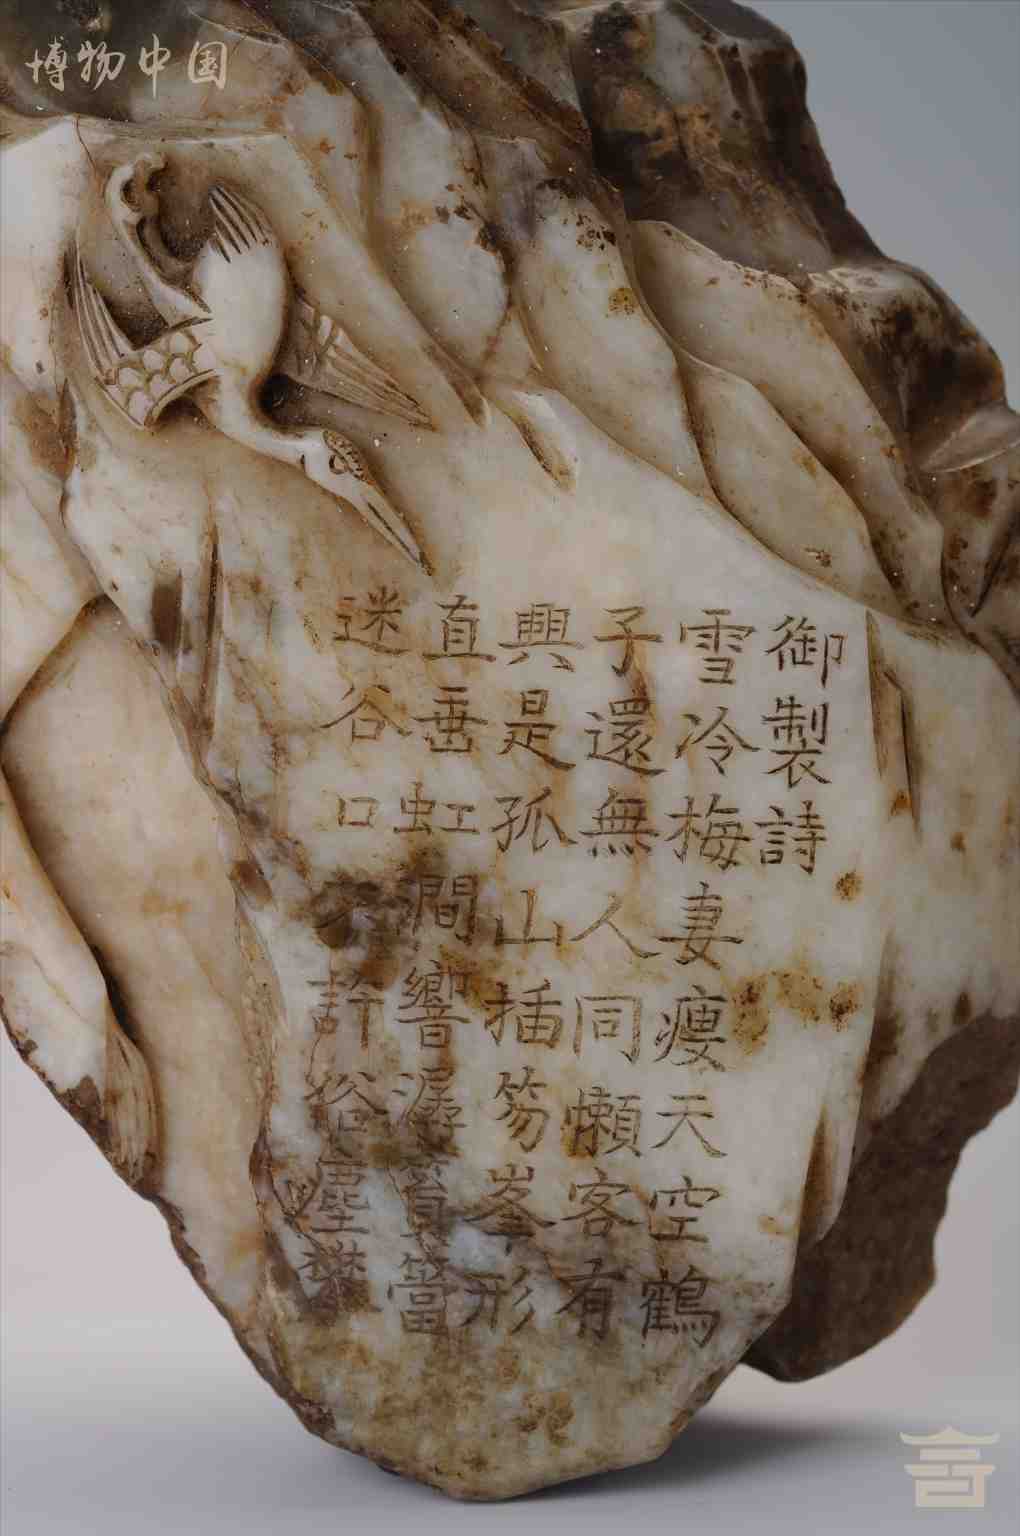 博物中国
御製詩
雪冷梅妻瘦天空鶴
子還無人同懶客有
興是孤山插笏峯形
直垂虹澗響潺篔簹
迷谷口不許俗塵樊